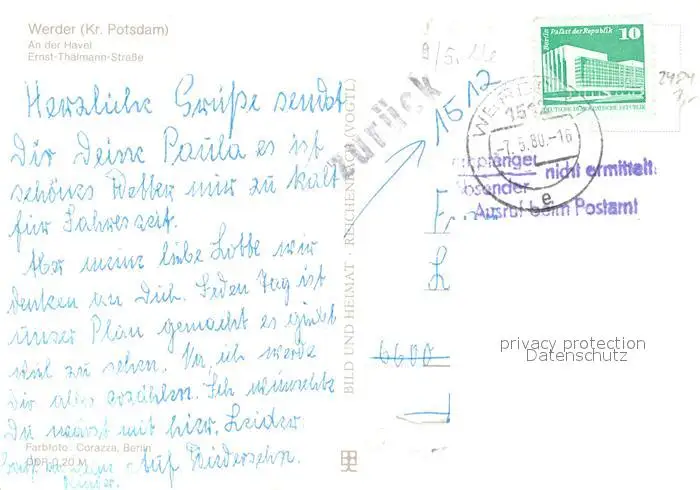 Werder (Kr. Potsdam)
An der Havel
Ernst-Thälmann-Straße
Herzliche Grüße sendet
Dir Deine Paula es ist
schönes Wetter nur zu kalt
für Jahreszeit.
Aber meine liebe Lotte wir
denken an Dich. Jeden Tag ist
unser Plan gemacht es giebt
viel zu sehen. Na, ich werde
Dir alles erzählen. Ich wünschte
Du wärst mit hier. Leider.
Auf Wiedersehn.
Kinder.
Farbfoto: Corazza, Berlin
DDR 0,20 M
BILD UND HEIMAT · REICHENBACH (VOGTL)
zurück
1512
Berlin Palast der Republik
10
DEUTSCHE DEMOKRATISCHE REPUBLIK
WERDER
1512
-7.5.80.-16
e
Empfänger nicht ermittelt
Absender
Ausruf beim Postamt
6600
privacy protection
Datenschutz